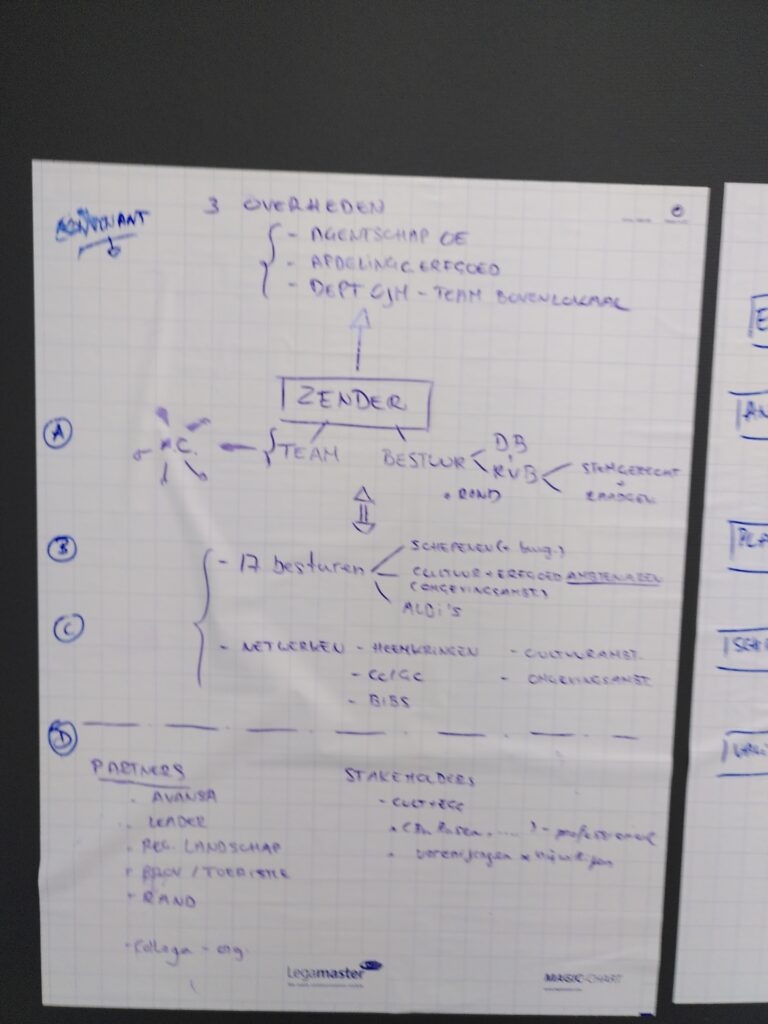 3 OVERHEDEN
CONVENANT
- AGENTSCHAP OE
- AFDELING C. ERFGOED
- DEPT CJM - TEAM BOVENLOKAAL
ZENDER
A
I.C.
TEAM
BESTUUR
DB
RVB
STEMGERECHT
+
RAADGEV
• RAND
B
- 17 besturen
SCHEPENEN (+ burg.)
CULTUUR + ERFGOED AMBTENAREN
(OMGEVINGSAMBT.)
ALDI'S
C
- NETWERKEN
- HEEMKRINGEN
- CULTUURAMBT.
- CC/GC
- OMGEVINGSAMBT.
- BIBS
D
PARTNERS
STAKEHOLDERS
• AVANSA
• LEADER
• REG. LANDSCHAP
• PROV / TOERISME
• RAND
- CULT + EG
- professioneel
• verenigingen x vrijwilligen
- Collega - org.
Legamaster
MAGIC-CHART